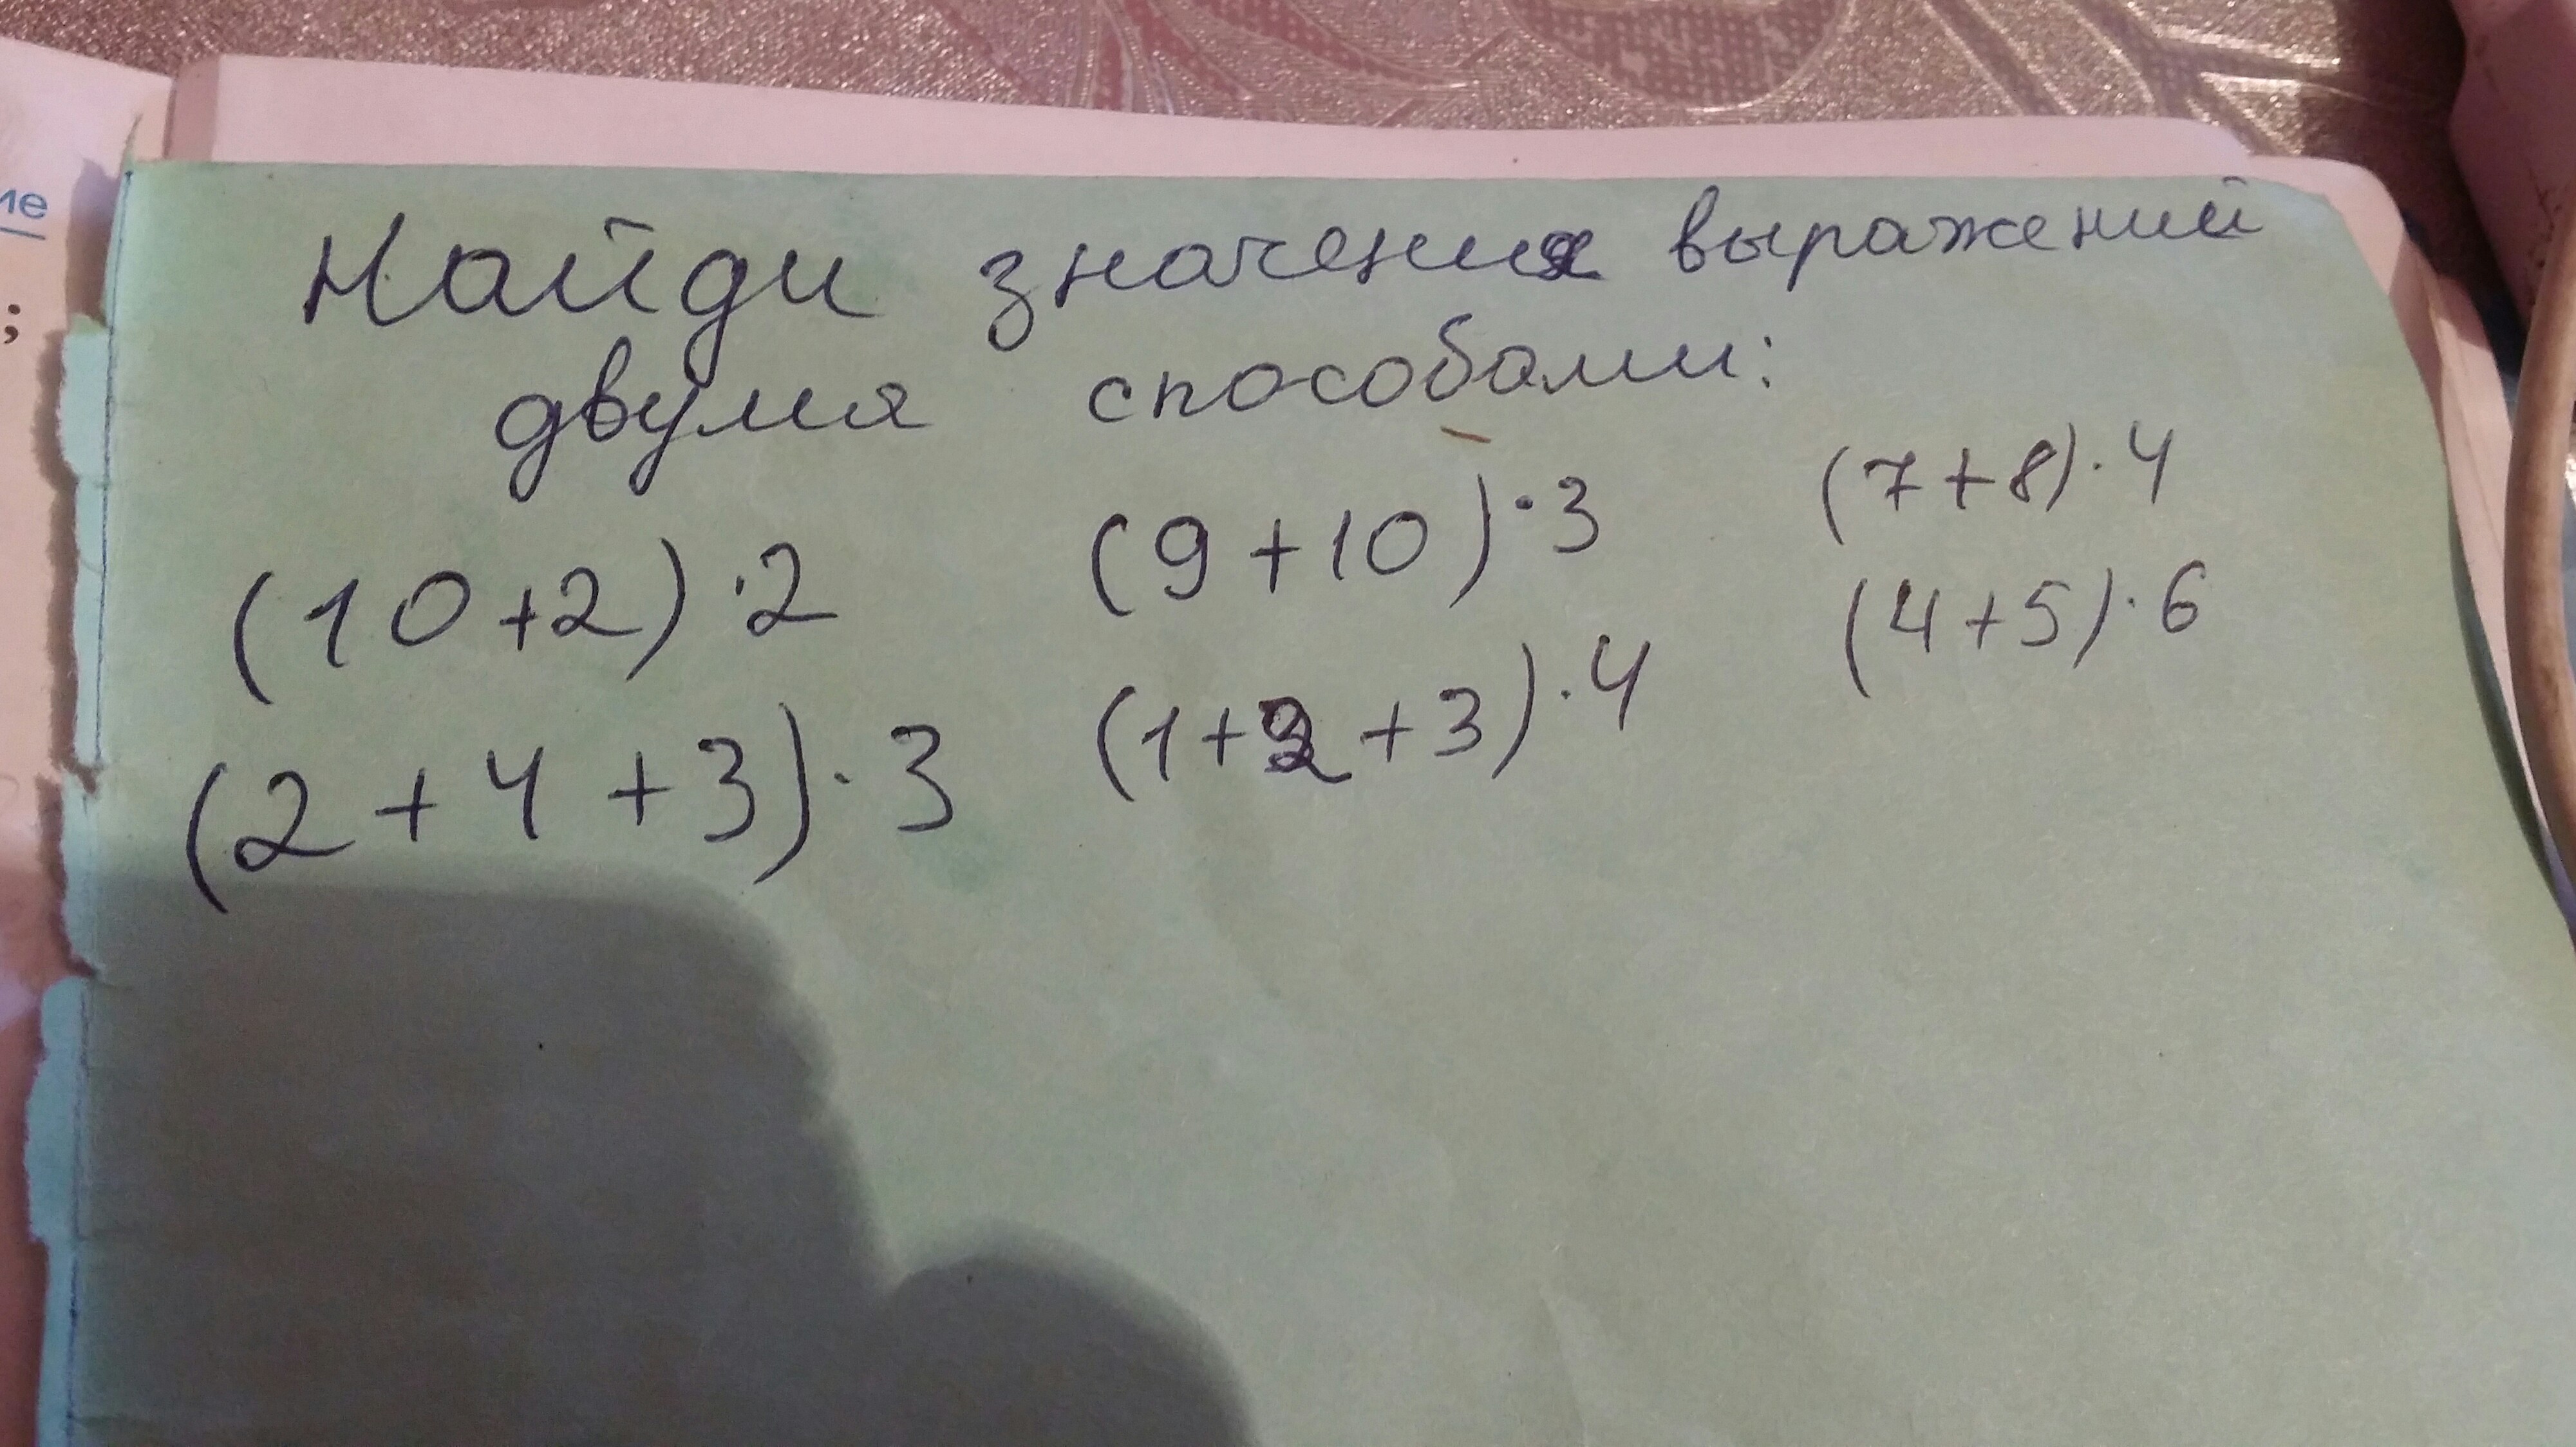 ие
;
Найди значения выражений
двумя способами:
(10+2)·2 (9+10)·3 (7+8)·4
(2+4+3)·3 (1+2+3)·4 (4+5)·6